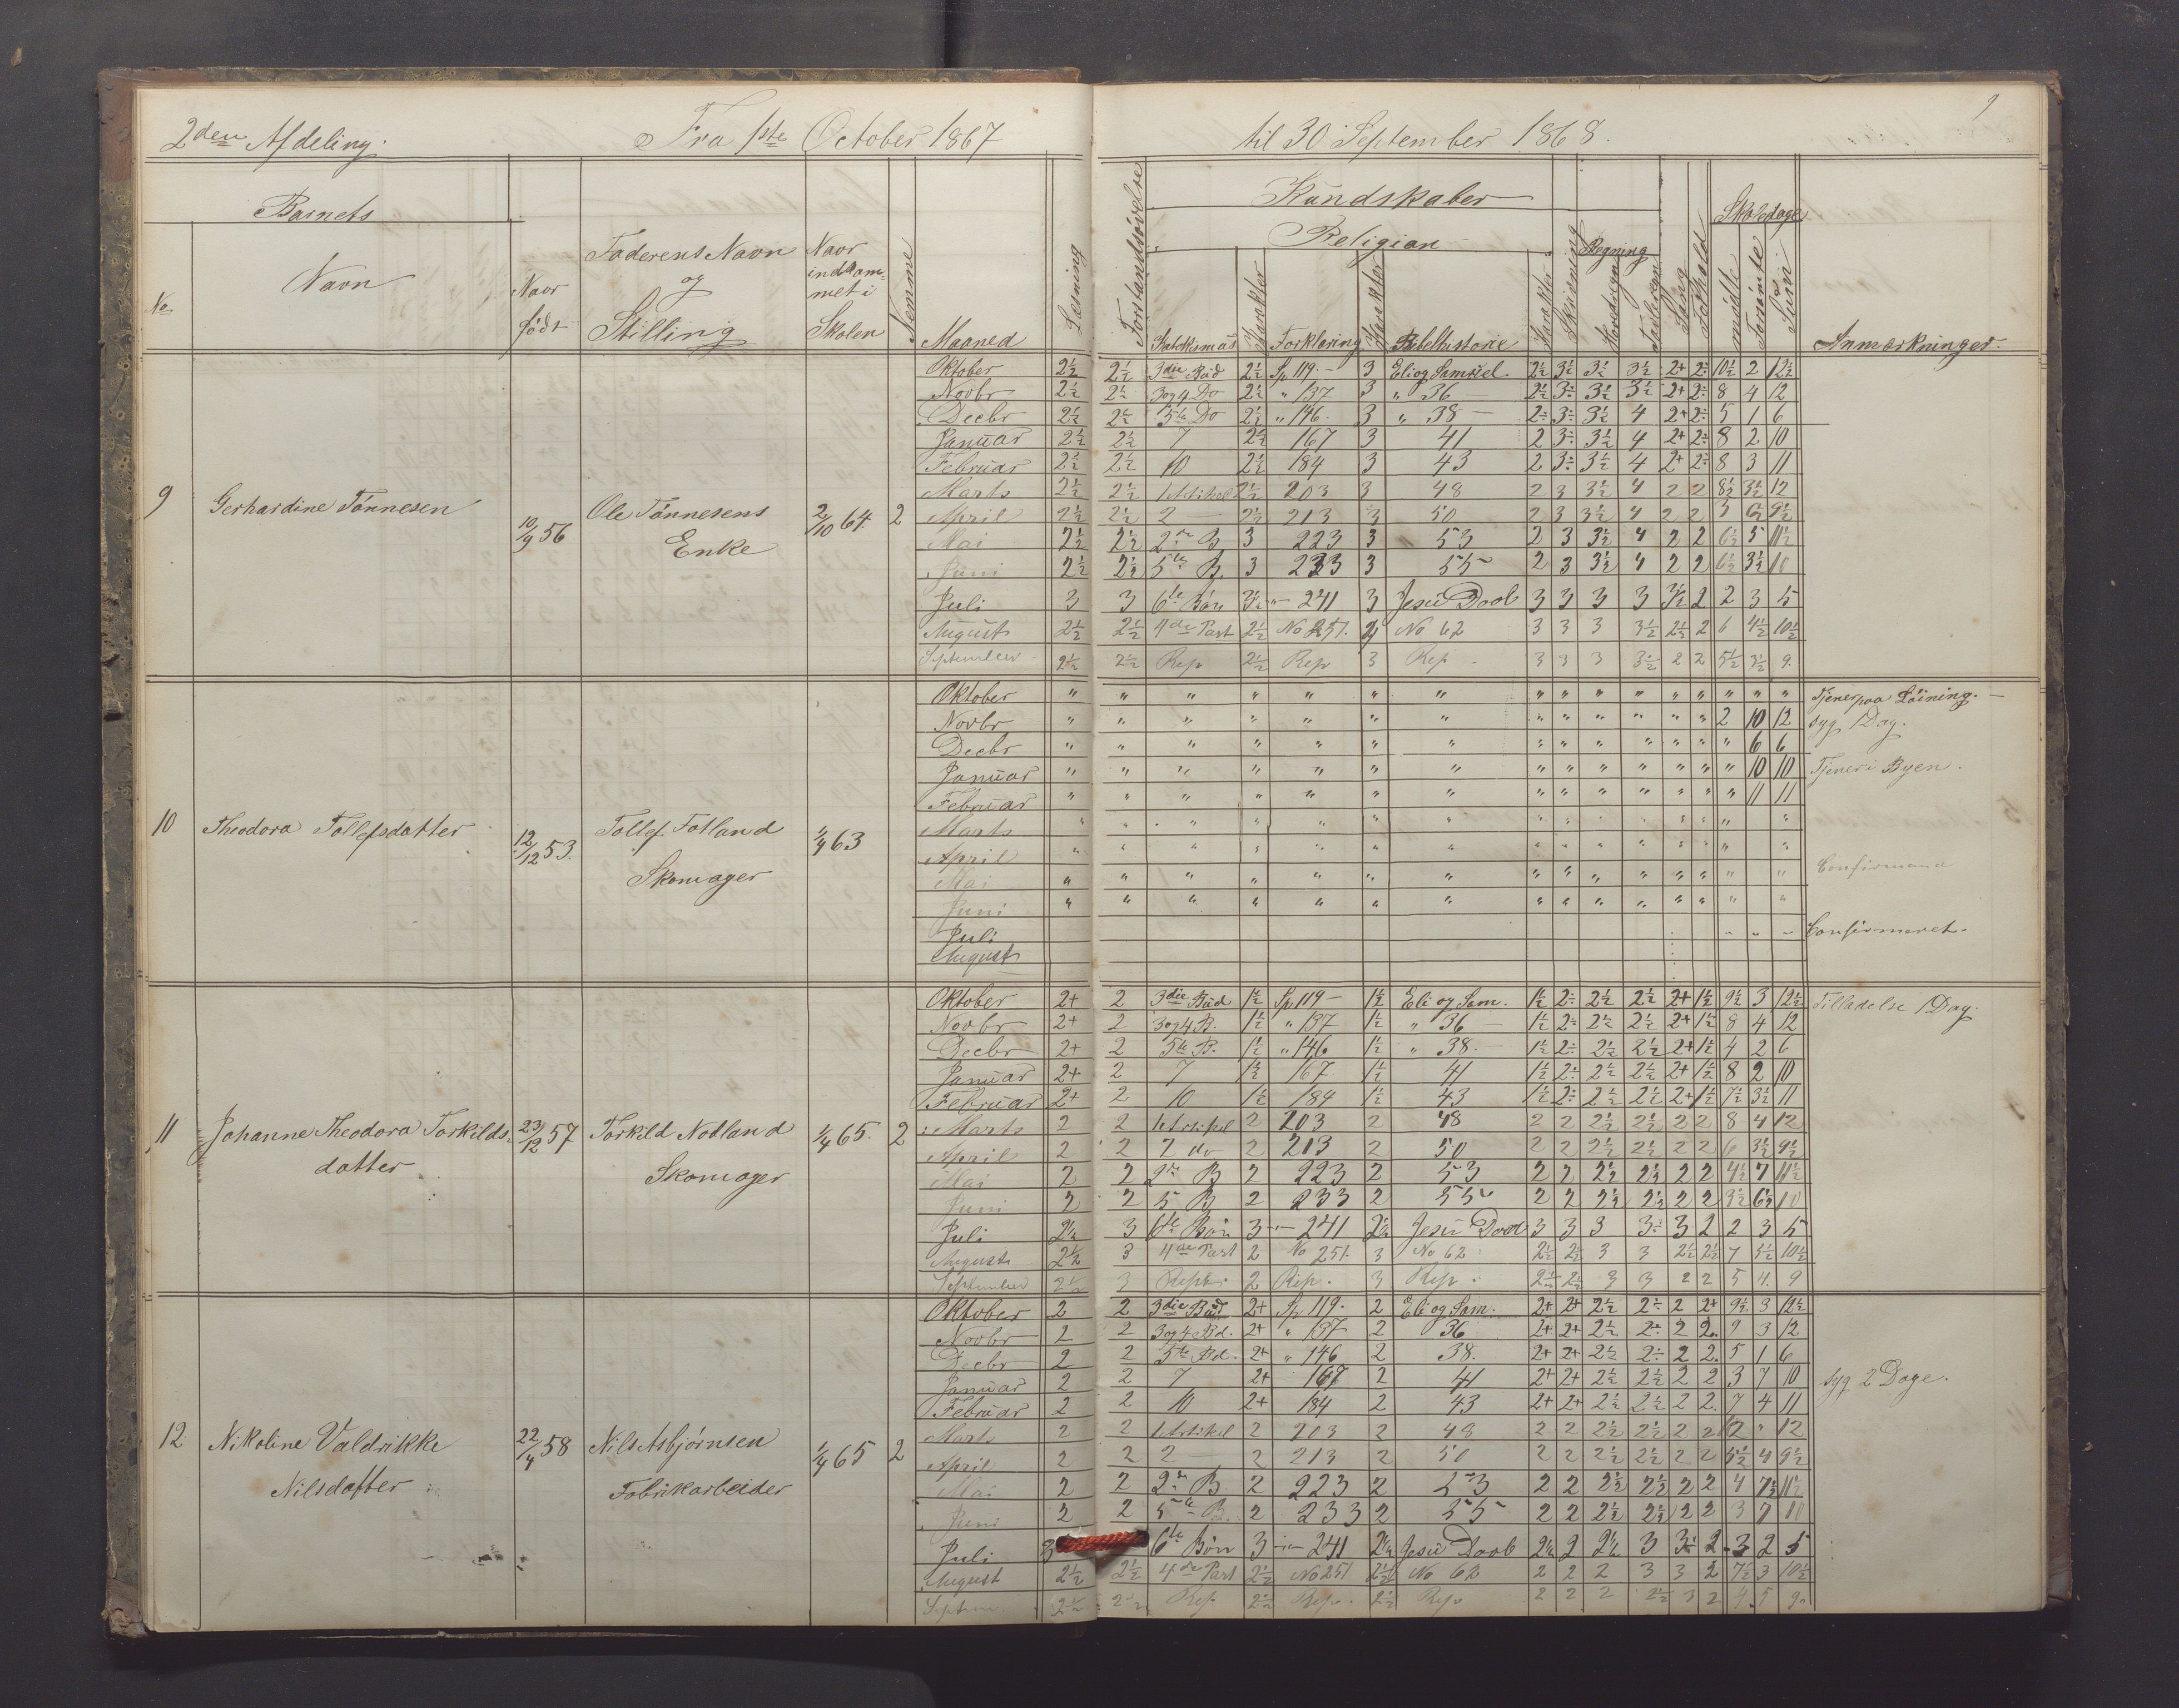 2den Afdeling. Fra 1ste October 1867 til 30 September 1868.
Barnets Kundskaber Skoledage
Religion Regning
No Navn Naar født Faderens Navn og Stilling Naar indkommet i Skolen Nemme Maaned Læsning Forstandsøvelse Katekismus Karakter Forklaring Karakter Bibelhistorie Karakter Skrivning Hovedregn Tavleregn Sang Forhold mødte Forsømte Sum Anmærkninger.
9 Gerhardine Tønnesen 10/9 56 Ole Tønnesens Enke 2/10 64 2
Oktober 2½ 2½ 3die Bud 2½ Sp 119.— 3 Eli og Samuel. 2½ 3½ 3½ 3½ 2+ 2÷ 10½ 2 12½
Novbr 2½ 2½ 3og4 Do 2½ " 137 3 " 36 — 2½ 3÷ 3½ 3½ 2+ 2÷ 8 4 12
Decbr 2½ 2½ 5te Do 2½ " 146. 3 " 38 — 2÷ 3÷ 3½ 4 2+ 2÷ 5 1 6
Januar 2½ 2½ 7 2½ 167 3 41 2 3÷ 3½ 4 2+ 2÷ 8 2 10
Februar 2½ 2½ 10 2½ 184 3 43 2 3÷ 3½ 4 2+ 2÷ 8 3 11
Marts 2½ 2½ 1 Artikel 2½ 203 3 48 2 3 3½ 4 2 2 8½ 3½ 12
April 2½ 2½ 2 — 2½ 213 3 50 2 3 3½ 4 2 2 3 6½ 9½
Mai 2½ 2½ 2den B 3 223 3 53 2 3 3½ 4 2 2 6½ 5 11½
Juni 2½ 2½ 5te B. 3 233 3 55 2 3 3½ 4 2 2 6½ 3½ 10
Juli 3 3 6te Bøn 3½ "— 241 3 Jesu Daab 3 3 3 3 3½ 2 2 3 5
August 2½ 2½ 4de Part 2½ No 251. 3 No 62 3 3 3 3½ 2½ 2 6 4½ 10½
September 2½ 2½ Rep 2½ Rep 3 Rep 3 3 3 3½ 2 2 5½ 3½ 9.
10 Theodora Tollefsdatter 12/12 53. Tollef Fotland Skomager 1/4 63
Oktober " " " " " " " " " " " " " " " " Tjener paa Løining. —
Novbr " " " " " " " " " " " " " 2 10 12 syg 1 Dag.
Decbr " " " " " " " " " " " " " " 6 6
Januar " " " " " " " " " " " " " " 10 10 Tjener i Byen.
Februar " " " " " " " " " " " " " " 11 11
Marts " " " " " " " " " " " " " " "
April " " " " " " " " " " " " " " "
Mai " " " " " " " " " " " " " " " Confirmand
Juni " " " " " " " " " " " " " " "
Juli " " " Confirmeret.
August
11 Johanne Theodora Torkildsdatter 23/12 57 Torkild Nodland Skomager 1/4 65. 2
Oktober 2+ 2 3die Bud 1½ Sp 119 — 1½ Eli og Sam. 1½ 2÷ 2½ 2½ 2+ 1½ 9½ 3 12½ Tilladelse 1 Dag.
Novbr 2+ 2 3og4 B. 1½ " 137 1½ " 36 — 1½ 2÷ 2½ 2½ 2+ 1½ 8 4 12
Decbr 2+ 2 5te B. 1½ " 146 1½ " 38.— 1½ 2÷ 2½ 2½ 2+ 1½ 4 2 6
Januar 2+ 2 7 1½ 167 1½ 41 1½ 2÷ 2½ 2½ 2+ 1½ 8 2 10
Februar 2+ 2 10 1½ 184 1½ 43 1½ 2÷ 2½ 2½ 2+ 1½ 7½ 3½ 11
Marts 2 2 1 Artikel 2 203 2 48 2 2 2½ 2½ 2 2 8 4 12
April 2 2 2 do 2 213 2 50 2 2 2½ 2½ 2 2 6 3½ 9½
Mai 2 2 2den B 2 223 2 53 2 2 2½ 2½ 2 2 4½ 7 11½
Juni 2 2 5 B 2 233 2 55 2 2 2½ 2½ 2 2 3½ 6½ 10
Juli 2½ 3 6te Bøn 3 -"- 241 2½ Jesu Daab 3 3 3 3÷ 3 2 2 3 5
August 2½ 3 4de Part 2 No 251. 3 No 62 2½ 2½ 3 3 2½ 2½ 7 3½ 10½
September 2½ 3 Rept. 2 Rep. 3 Rep. 2½ 2½ 3 3 2 2 5 4. 9
12 Nikoline Valdrikke Nilsdatter 22/4 58 Nils Asbjørnsen Fabrikarbeider 1/4 65 2
Oktober 2 2 3die Bud 2+ Sp 119. 2 Eli og Sam. 2+ 2+ 2½ 2÷ 2 2+ 9½ 3 12½
Novbr 2 2 3og4 Bd. 2+ " 137 2 36 2+ 2+ 2½ 2÷ 2 2. 9 3 12
Decbr 2 2 5te Bd. 2+ " 146 2 38. 2+ 2+ 2½ 2÷ 2 2. 5 1 6
Januar 2 2 7 2+ 167 2 41 2+ 2+ 2½ 2½ 2 2 3 7 10 syg 2 Dage.
Februar 2 2 10 2+ 184 2 43 2+ 2+ 2½ 2½ 2 2. 7 4 11
Marts 2 2 1 Artikel 2 203 2 48 2 2 2½ 2½ 2 2 12 " 12
April 2 2 2 — 2 213 2 50 2 2 2½ 2½ 2 2 5½ 4 9½
Mai 2 2 2den B. 2 223 2 53 2 2 2½ 2½ 2 2 4 7½ 11½
Juni 2 2 5te B. 2 233 2 55 2 2 2½ 2½ 2 2 3 7 10
Juli 3 6te Bøn 3 -"- 241 2½ Jesu Daab 2½ 2 2½ 3 3÷ 2 3 2 5
August 2½ 2½ 4de Part 2½ No 251 2½ No 62 2 2 2 3 3 2 7½ 3 10½
Septem 2½ 2½ Rep. 2½ Rep. 2½ Rep 2 2 2 2½ 3 2 4 5 9